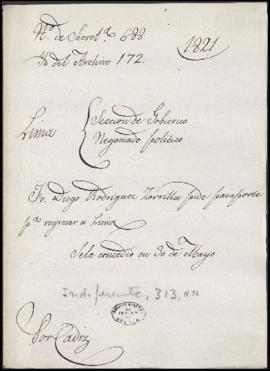 Nº. de Secretª. 688
Yd. del Archivo 172.
1821
Lima
Seccion de Gobierno
Negociado politico
Fr. Diego Rodriguez Zorrilla pide pasaporte
pª. regresar á Lima
Se le concedio en 30 de Mayo
Indiferente, 313, n. 92
SEVILLA
Por Cadiz